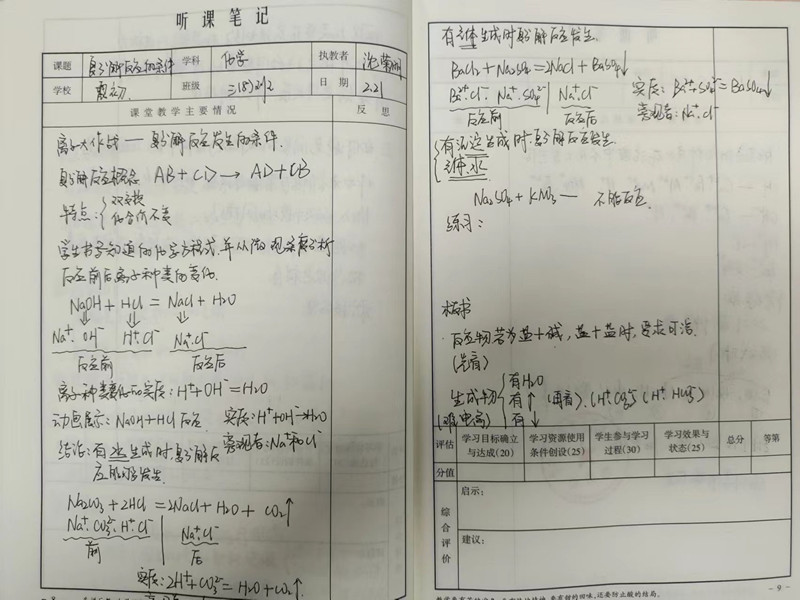 听课笔记
课题 复分解反应的条件 学科 化学 执教者
学校 班级 日期 2.21
课堂教学主要情况 反思
离子大作战——复分解反应发生的条件.
复分解反应概念 AB+CD→AD+CB
特点:{双交换
化合价不变
学生书写知道的化学方程式,并从微观来分析
反应前后离子种类的变化.
NaOH+HCl=NaCl+H2O
Na⁺ OH⁻ H⁺Cl⁻ Na⁺.Cl⁻
反应前 反应后
离子种类变化的实质:H⁺+OH⁻=H2O
动画展示:NaOH+HCl反应 实质:H⁺+OH⁻→H2O
结论:有水生成时,复分解反 旁观者:Na⁺和Cl⁻
应能够发生.
Na2CO3+2HCl=2NaCl+H2O+CO2↑
Na⁺.CO3²⁻.H⁺.Cl⁻ Na⁺.Cl⁻
前 后
实质:2H⁺+CO3²⁻=H2O+CO2↑.
有气体生成时复分解反应发生.
BaCl2+Na2SO4=2NaCl+BaSO4↓
Ba²⁺.Cl⁻ Na⁺.SO4²⁻ Na⁺.Cl⁻ 实质:Ba²⁺+SO4²⁻=BaSO4↓
反应前 反应后 旁观者:Na⁺.Cl⁻
{有沉淀生成时.复分解反应发生.
气体.水
Na2SO4+KNO3— 不能反应.
练习:
板书
反应物若为盐+碱,盐+盐时,要求可溶.
生成物{有H2O
有↑
有↓
评估 学习目标确立与达成(20) 学习资源使用条件创设(25) 学生参与学习过程(30) 学习效果与状态(25) 总分 等第
分值
综合评价 启示:
建议:
-9-